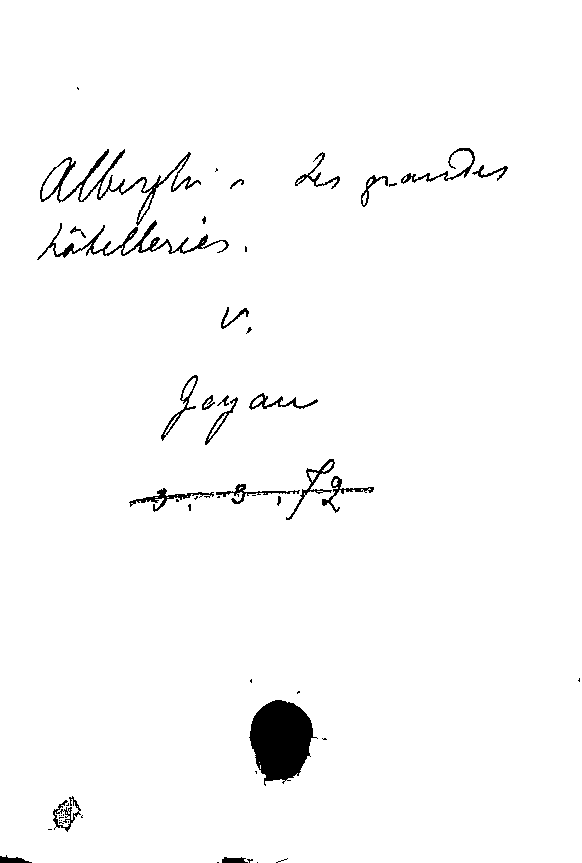 Alberghi - Les grandes
hôtelleries.
v.
Joyau
3. 3. 72